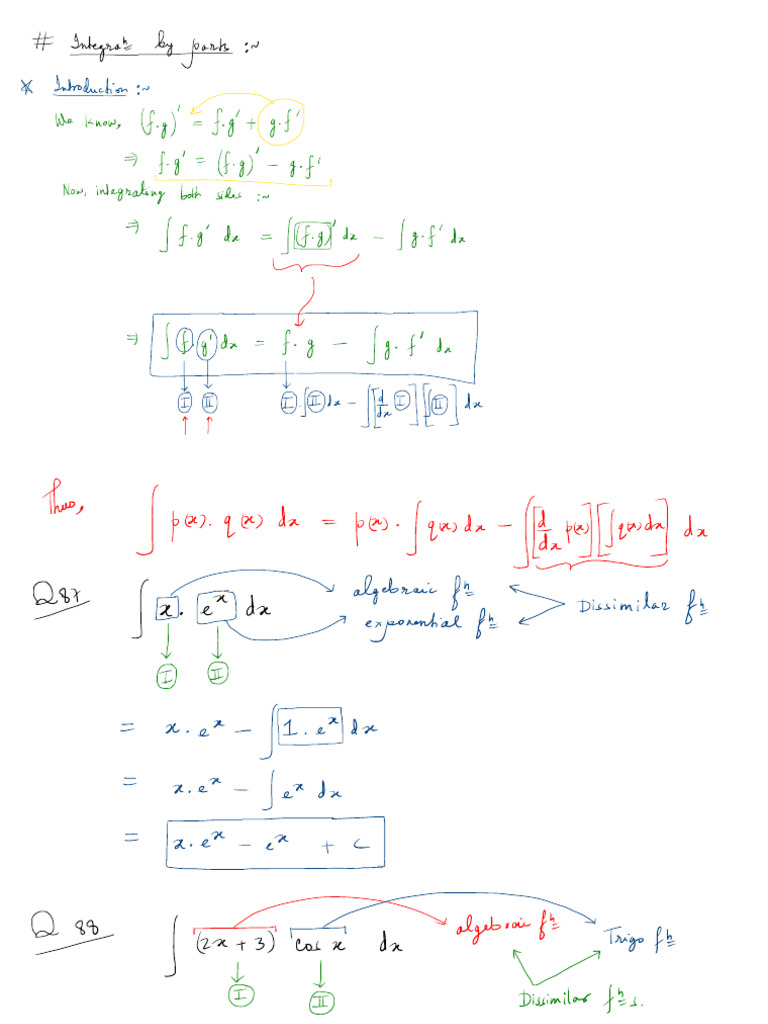 # Integraⁿ by parts :~
* Introduction :~
We know, (f.g)' = f.g' + g.f'
⇒ f.g' = (f.g)' − g.f'
Now, integrating both sides :~
⇒ ∫ f.g' dx = ∫ (f.g)' dx − ∫ g.f' dx
⇒ ∫ f. g' dx = f. g − ∫ g. f' dx
I II I . ∫ II dx − ∫ [d/dx I] [∫ II ] dx
Thus, ∫ p(x). q(x) dx = p(x). ∫ q(x) dx − ∫ [d/dx p(x)] [∫ q(x) dx] dx
Q87 ∫ x. eˣ dx algebraic fⁿ
exponential fⁿ Dissimilar fⁿ
I II
= x. eˣ − ∫ 1. eˣ dx
= x. eˣ − ∫ eˣ dx
= x. eˣ − eˣ + c
Q 88 ∫ (2x + 3) cos x dx algebraic fⁿ Trigo fⁿ
I II Dissimilar fⁿs.